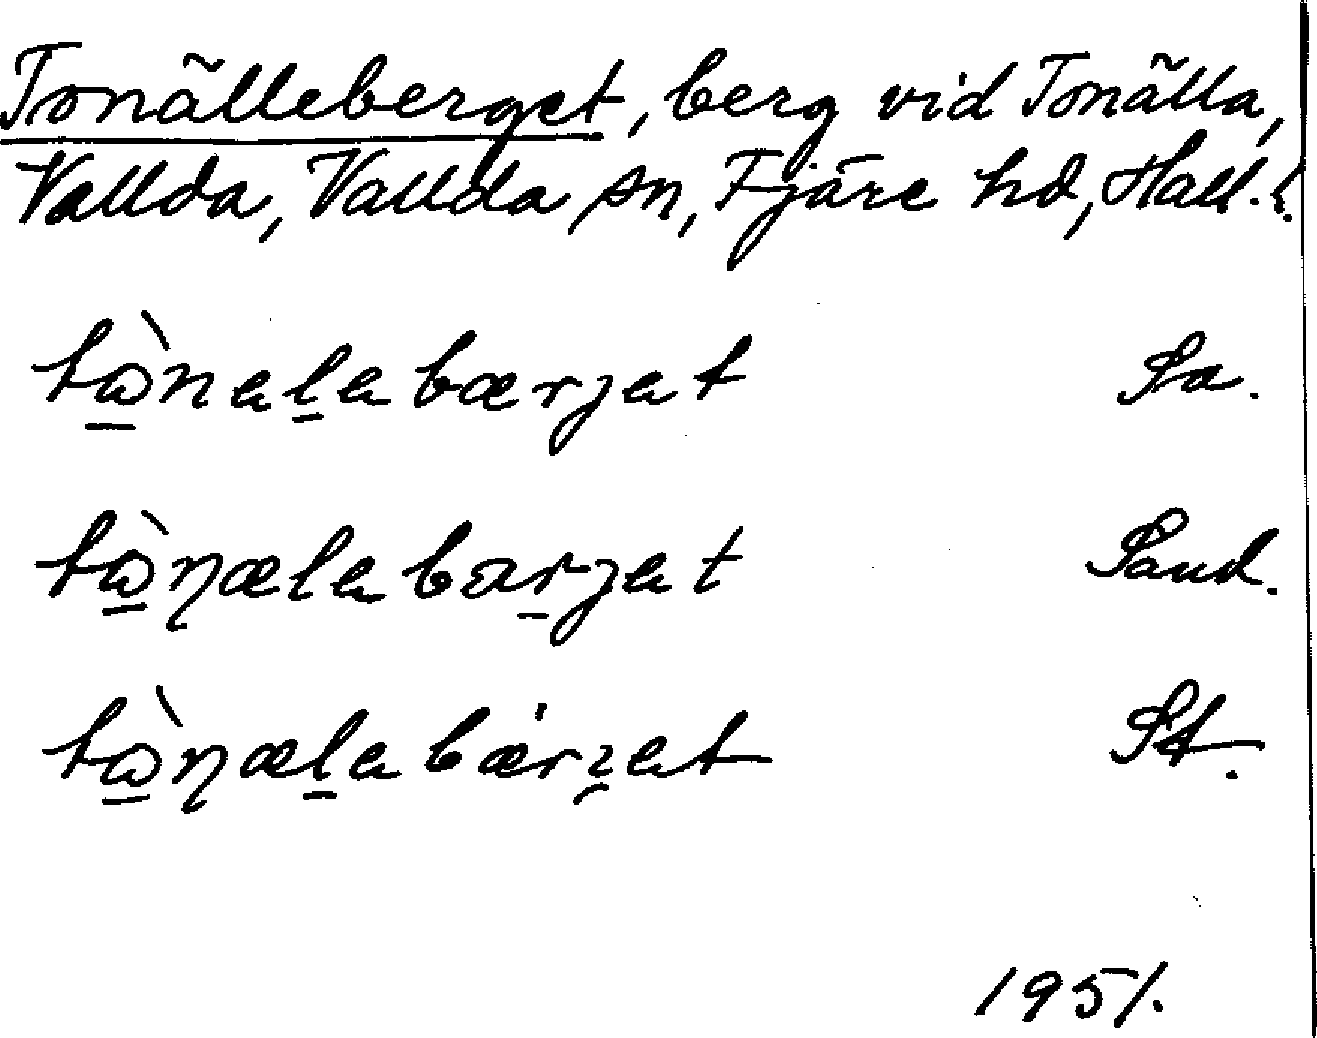 Tonälleberget, berg vid Tonälla,
Vallda, Vallda sn, Fjäre hd, Hall. l.
tὼ̲nel̲ebærjet Sa.
tὼ̲ŋælebar̲jet Sand.
tὼ̲ŋæl̲ebærʒet St.
1951.